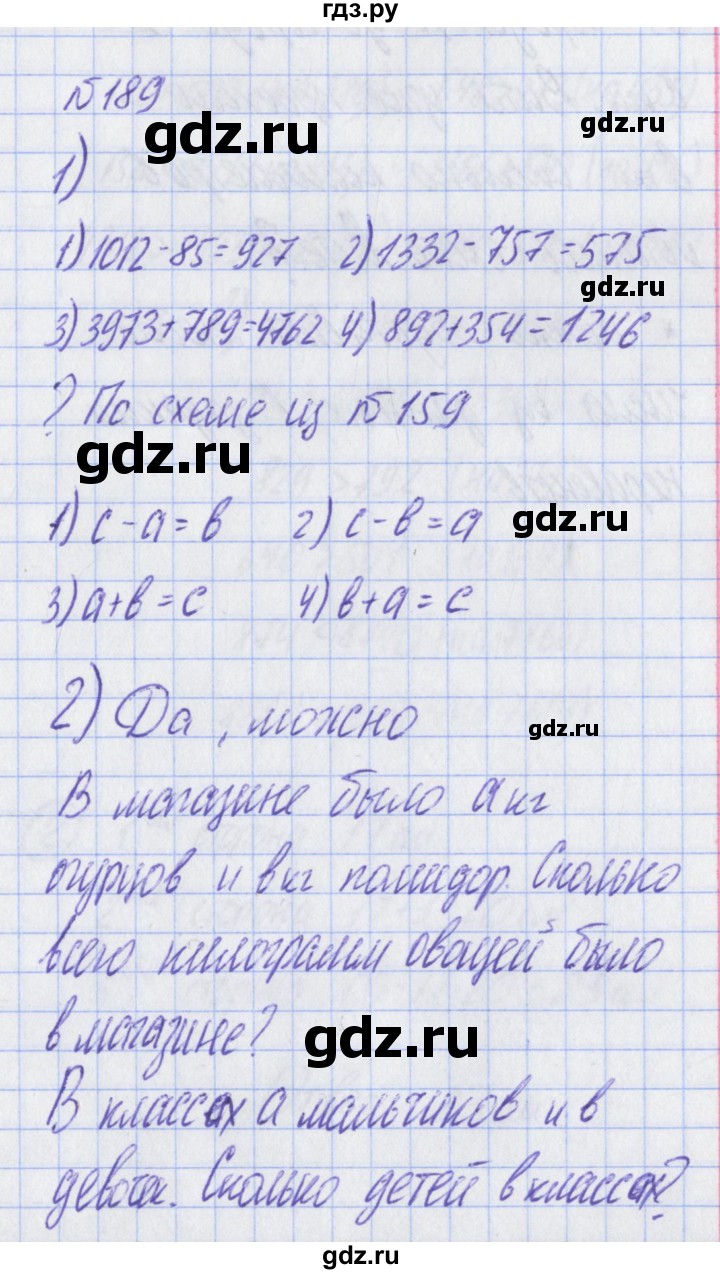 гдз.ру
№189
gdz.ru
gdz.ru
1)
1) 1012-85=927 2) 1332-757=575
gdz.ru
3) 3973+789=4762 4) 892+354=1246
? По схеме из №159
gdz.ru
1) c-a=b 2) c-b=a
gdz.ru
3) a+b=c 4) b+a=c
2) Да, можно
gdz.ru
В магазине было a кг
огурцов и в кг помидор. Сколько
всего килограмм овощей было
в магазине?
gdz.ru
В классах a мальчиков и в
девочек. Сколько детей в классах?
gdz.ru